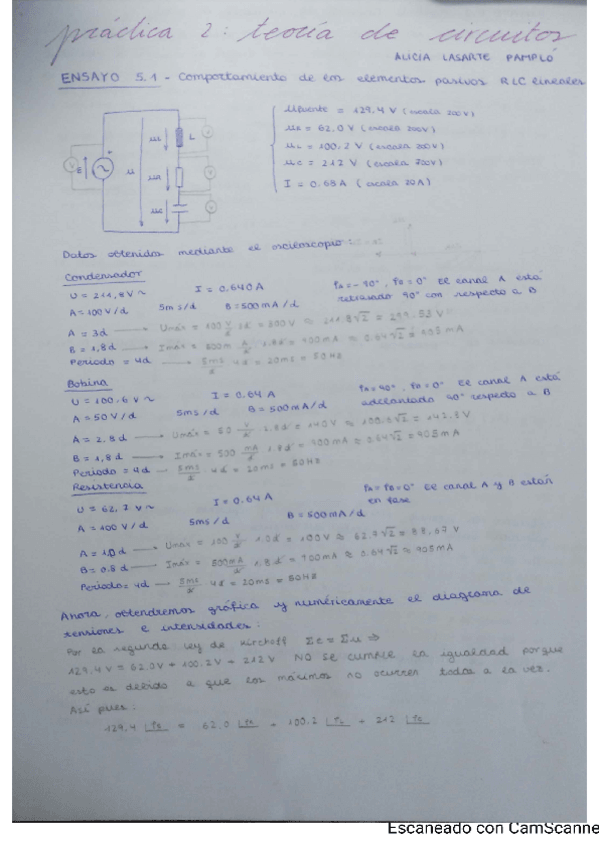 práctica 2: teoría de circuitos
ALICIA LASARTE PAMPLÓ
ENSAYO 5.1 - Comportamiento de los elementos pasivos RLC lineales
E
u
uL
L
uR
uC
ufuente = 129.4 V (escala 200V)
uR = 62.0 V (escala 200V)
uL = 100.2 V (escala 200V)
uC = 212 V (escala 700V)
I = 0.63A (escala 20A)
Datos obtenidos mediante el osciloscopio:
Condensador
U = 211,8V~ I = 0.640A
A = 100 V/d 5ms/d B = 500mA/d
φA = -90°, φB = 0° El canal A está
retrasado 90° con respecto a B
A = 3d → Umáx = 100 V/d · 3d = 300V ≈ 211.8√2 = 299.53 V
B = 1,8d → Imáx = 500m A/d · 1.8d = 900mA ≈ 0.64√2 = 905mA
Período = 4d → 5ms/d · 4d = 20ms = 50Hz
Bobina
U = 100.6 V~ I = 0.64 A
A = 50V/d 5ms/d B = 500mA/d
φA = 90°, φB = 0° El canal A está
adelantado 90° respecto a B
A = 2.8d → Umáx = 50 V/d · 2.8d = 140V ≈ 100.6√2 = 142.8V
B = 1,8d → Imáx = 500 mA/d · 1.8d = 900mA ≈ 0.64√2 = 905mA
Período = 4d → 5ms/d · 4d = 20ms = 50Hz
Resistencia
U = 62,7 V~ I = 0.64A
A = 100 V/d 5ms/d B = 500mA/d
φA = φB = 0° El canal A y B están
en fase
A = 1.0 d → Umáx = 100 V/d · 1.0d = 100V ≈ 62.7√2 = 88.67V
B = 0.8d → Imáx = 500mA/d · 1.8d = 900mA ≈ 0.64√2 = 905mA
Período = 4d → 5ms/d · 4d = 20ms = 50Hz
Ahora, obtendremos gráfica y numéricamente el diagrama de
tensiones e intensidades:
Por la segunda ley de Kirchoff Σe = Σu ⇒
129.4V = 62.0V + 100.2V + 212V NO se cumple la igualdad porque
esto es debido a que los máximos no ocurren todos a la vez.
Así pues:
129.4 = 62.0 + 100.2 + 212
Escaneado con CamScanne